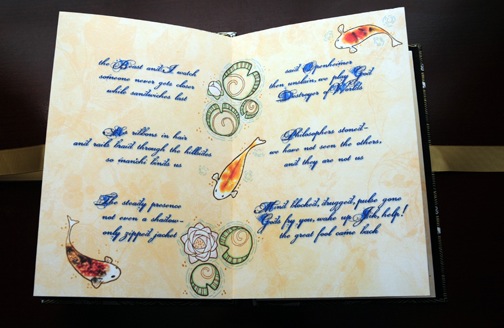 the Beast and I watch
someone never gets closer
while sandwiches last
As ribbons in hair
and rails braid through the hillsides
so us
The steady presence
not even a shadow—
only zipped jacket
said Openheimer
then unslain, we play God
Destroyer of Worlds
Philosophers stoned—
we have not seen the others,
and they are not us
Mind blocked, drugged, pulse gone
Gods fry you, wake up help!
the great fool came back